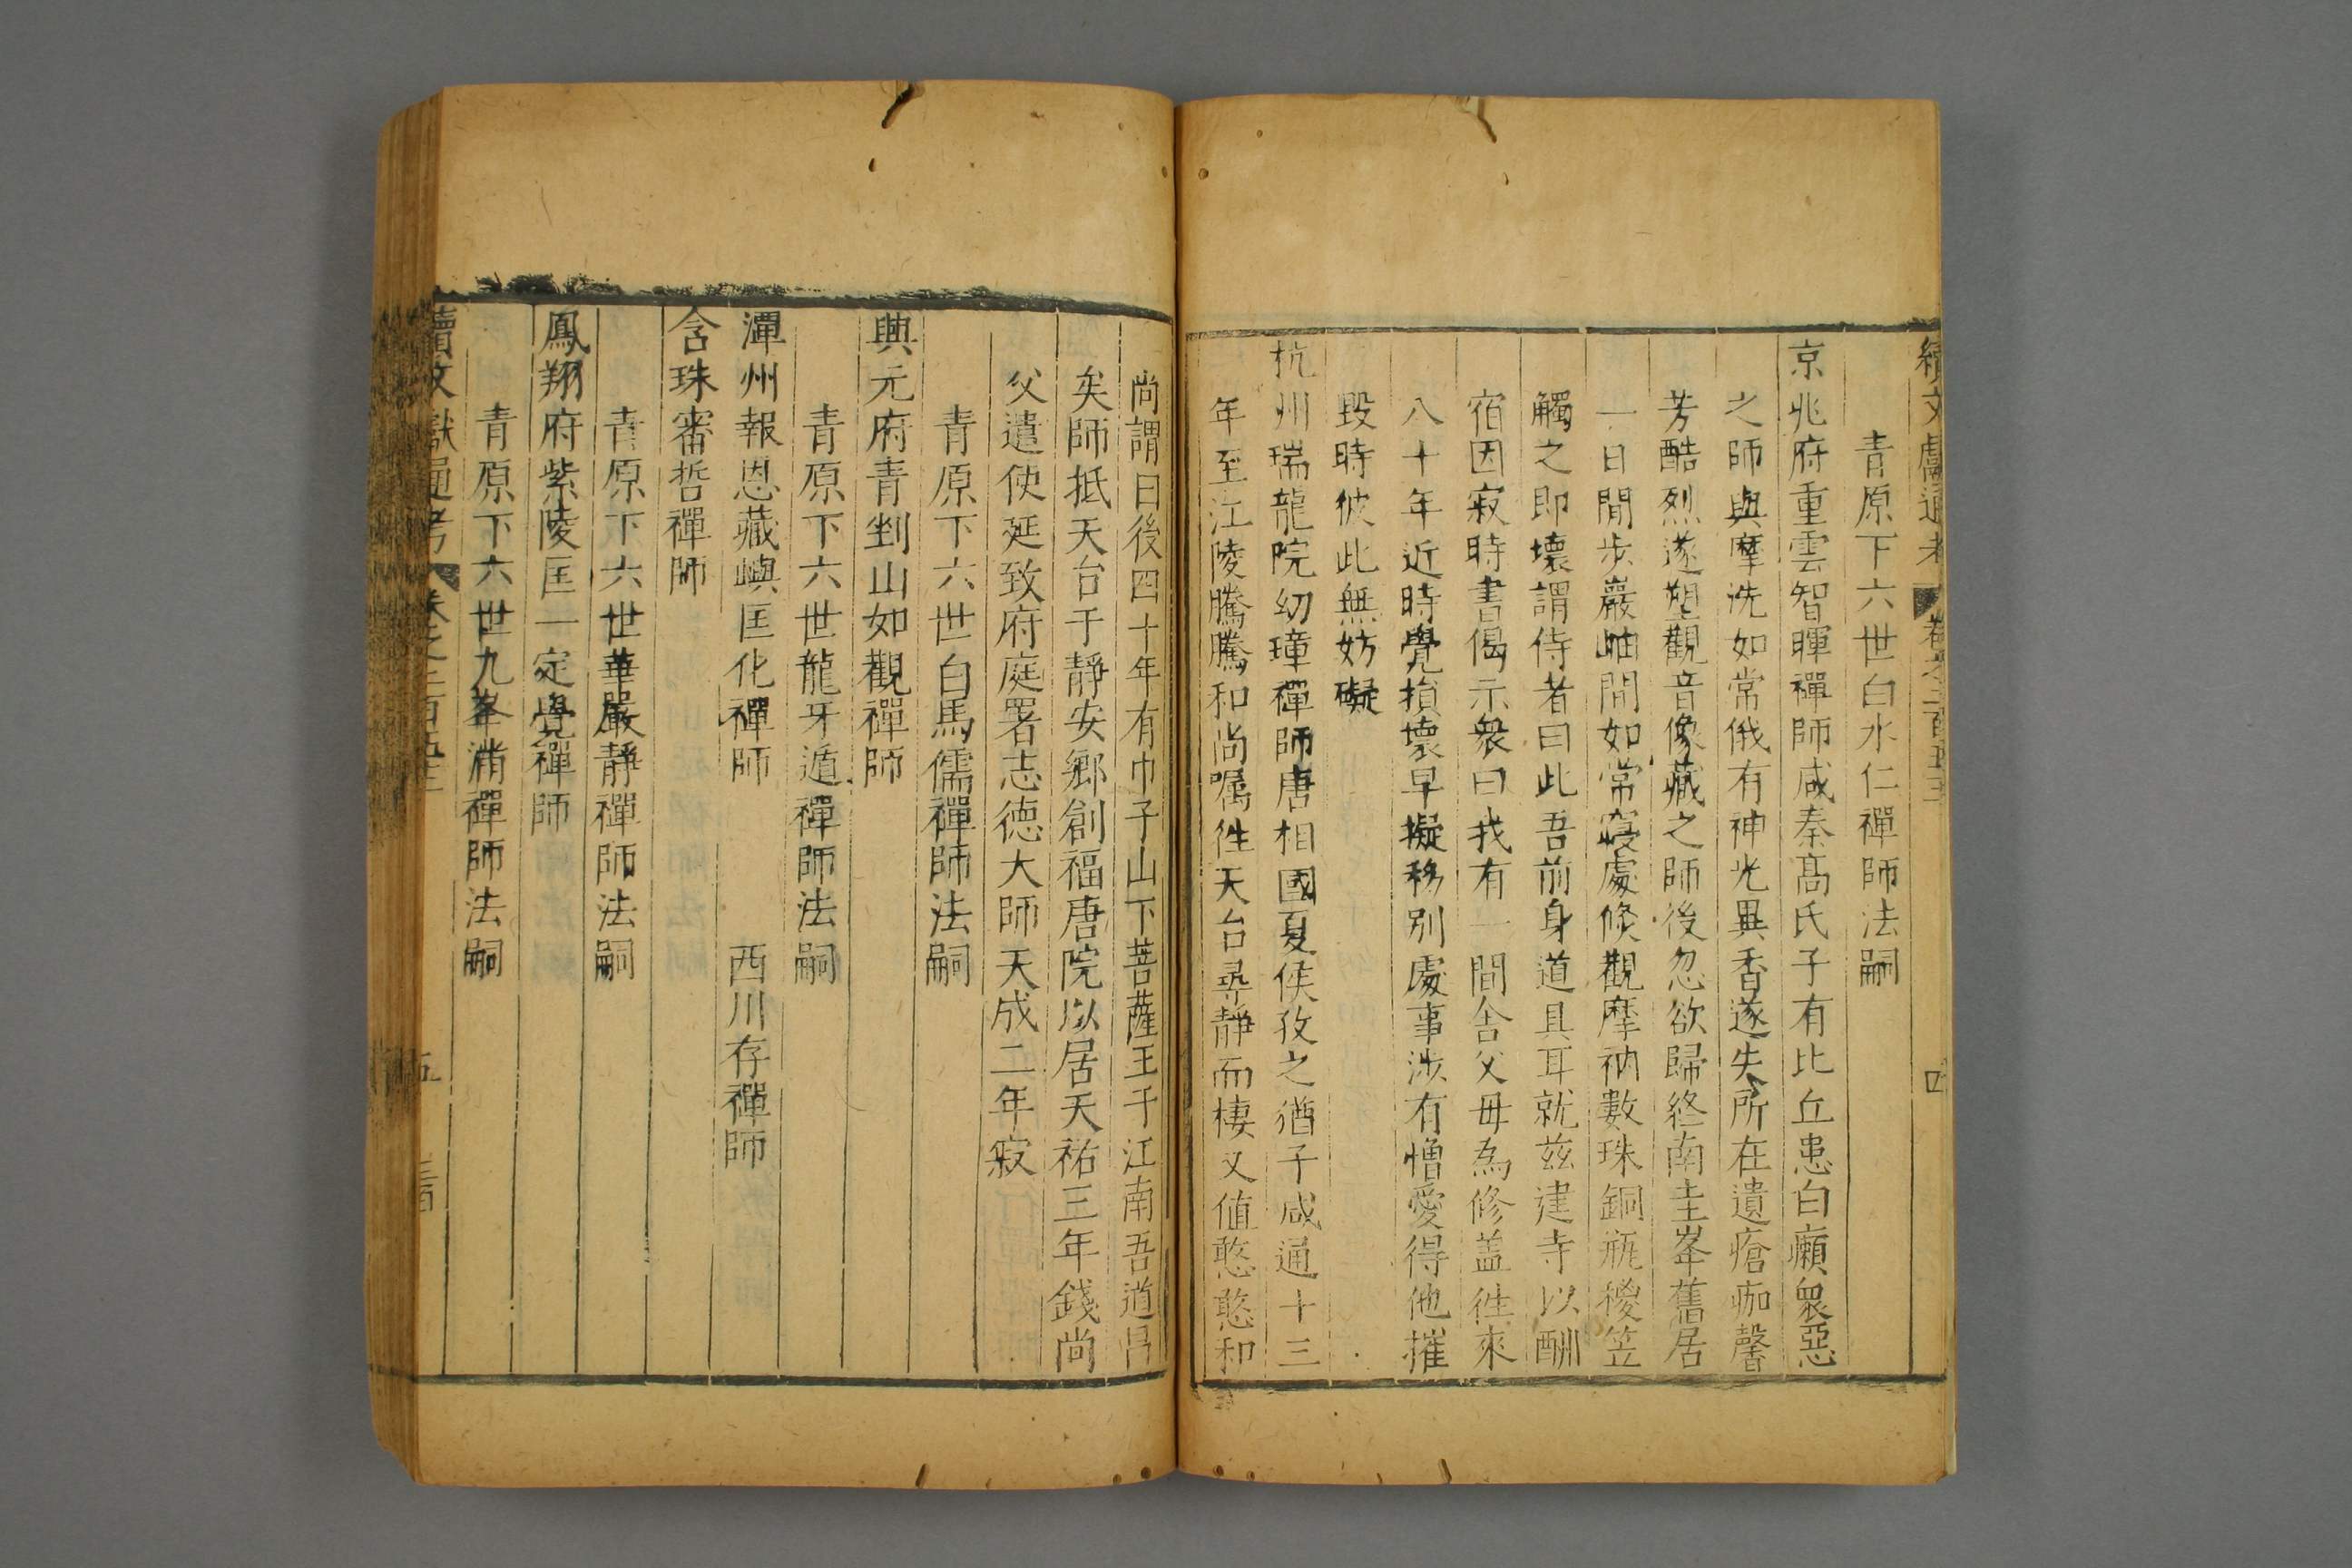 續文獻通考 卷之二百五十三 四
青原下六世白水仁禪師法嗣
京兆府重雲智暉禪師咸秦髙氏子有比丘患白癩衆惡
之師與摩洗如常俄有神光異香遂失所在遺瘡痂馨
芳酷烈遂塑觀音像藏之師後忽欲歸終南圭峯舊居
一日間步巖岫間如常寢處倏觀摩衲數珠銅瓶椶笠
觸之即壞謂侍者曰此吾前身道具耳就兹建寺以酬
宿因寂時書偈示衆曰我有一間舍父母為修盖徃來
八十年近時覺損壞早擬移別處事涉有憎愛得他摧
毀時彼此無妨礙
杭州瑞龍院幼璋禪師唐相國夏侯孜之猶子咸通十三
年至江陵騰騰和尚囑徃天台尋靜而棲又值憨憨和
尚謂曰後四十年有巾子山下菩薩王于江南吾道昌
矣師抵天台于靜安鄉創福唐院以居天祐三年錢尚
父遣使延致府庭署志德大師天成二年寂
青原下六世白馬儒禪師法嗣
興元府青剉山如觀禪師
青原下六世龍牙遁禪師法嗣
潭州報恩藏嶼匡化禪師 西川存禪師
含珠審哲禪師
青原下六世華嚴靜禪師法嗣
鳳翔府紫陵匡一定覺禪師
青原下六世九峯滿禪師法嗣
續文獻通考 卷之二百五十三 五